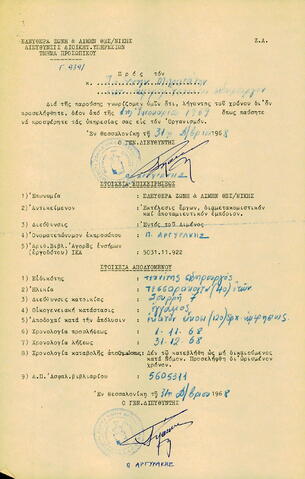 ΕΛΕΥΘΕΡΑ ΖΩΝΗ & ΛΙΜΗΝ ΘΕΣ/ΝΙΚΗΣ
Σ.Α.
ΔΙΕΥΘΥΝΣΙΣ ΔΙΟΙΚΗΤ.ΥΠΗΡΕΣΙΩΝ
ΤΜΗΜΑ ΠΡΟΣΩΠΙΚΟΥ
Πρός τόν
Διά τῆς παρούσης γνωρίζομεν ὑμῖν ὅτι, λήγοντος τοῦ χρόνου δι' ὅν
προσελήφθητε, δέον ἀπό τῆς 1ης Ἰανουαρίου 1969 ὅπως παύσητε
νά προσφέρητε τάς ὑπηρεσίας σας εἰς τόν Ὀργανισμόν.
Ἐν Θεσσαλονίκῃ τῇ 31ῃ Δ/βρίου 1968
Ὁ ΓΕΝ.ΔΙΕΥΘΥΝΤΗΣ
Π. ΑΡΓΥΡΑΚΗΣ
ΣΤΟΙΧΕΙΑ ΕΠΙΧΕΙΡΗΣΕΩΣ
1) Ἐπωνυμία : ΕΛΕΥΘΕΡΑ ΖΩΝΗ & ΛΙΜΗΝ ΘΕΣ/ΝΙΚΗΣ
2) Ἀντικείμενον : Ἐκτέλεσις ἔργων, διαμετακομιστικόν
καί ἀποταμιευτικόν ἐμπόριον.
3) Διεύθυνσις : Ἐντός τοῦ Λιμένος
4) Ὀνοματεπώνυμον ἐκπροσώπου : Π. ΑΡΓΥΡΑΚΗΣ
5) Ἀριθ.Βιβλ. Ἀγορᾶς ἐνσήμων
(ἐργοδότου) ΙΚΑ : 5031.11.922
ΣΤΟΙΧΕΙΑ ΑΠΟΛΥΟΜΕΝΟΥ
1) Εἰδικότης :
2) Ἡλικία : Τεσσαράκοντα (40) ἐτῶν
3) Διεύθυνσις κατοικίας : 7
4) Οἰκογενειακή κατάστασις : ἔγγαμος
5) Ἀποδοχαί κατά τήν ἀπόλυσιν :
6) Χρονολογία προσλήψεως : 1-11-68
7) Χρονολογία λήξεως : 31-12-68
8) Χρονολογία καταβολῆς ἀποζημιώσεως: Δέν τῷ κατεβλήθη ὡς μή δικαιούμενος
κατά νόμον. Προσελήφθη δι' ὡρισμένον
χρόνον.
9) Α.Π. Ἀσφαλ.βιβλιαρίου : 5605311
Ἐν Θεσ/νίκῃ τῇ 31ῃ Δ/βρίου 1968
Ὁ ΓΕΝ.ΔΙΕΥΘΥΝΤΗΣ
Π. ΑΡΓΥΡΑΚΗΣ